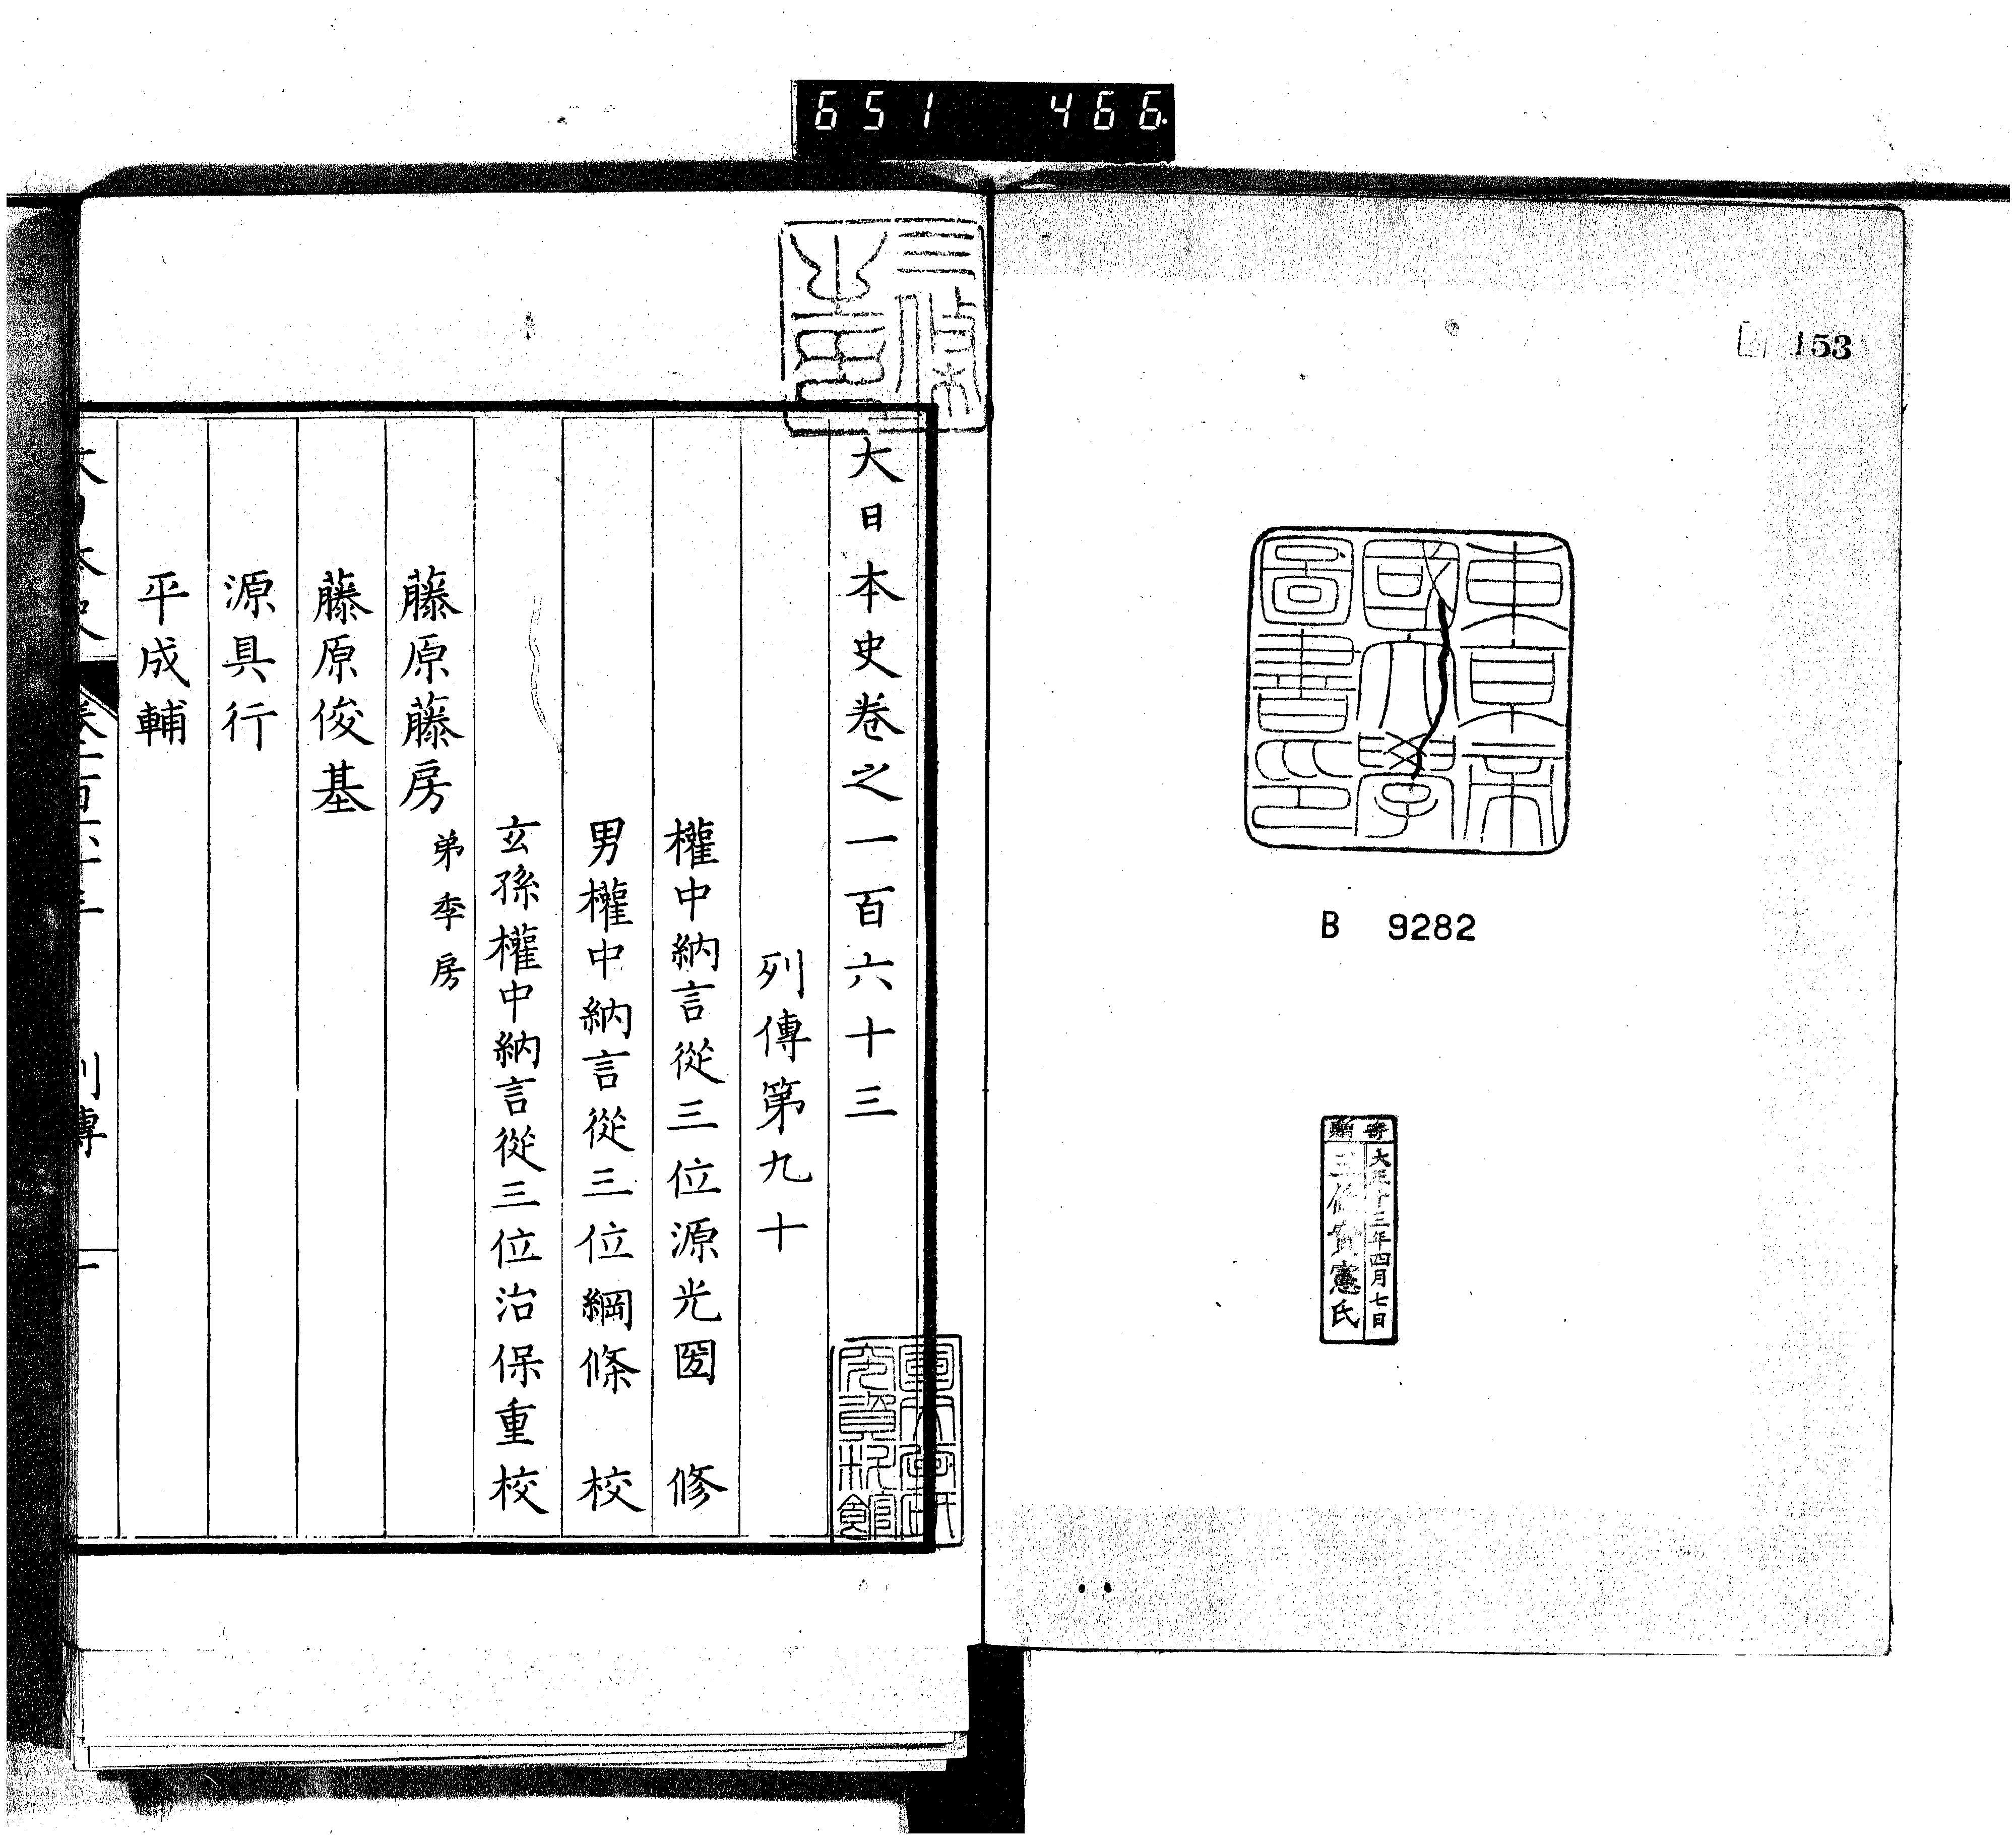 651 466
153
東京帝
國大學
圖書印
B 9282
寄贈
大正十三年四月七日
三條實憲氏
大日本史卷之一百六十三
列傳第九十
權中納言從三位源光圀 修
男權中納言從三位綱條 校
玄孫權中納言從三位治保重校
藤原藤房 弟季房
藤原俊基
源具行
平成輔
大日本史 卷一百六十三 列傳 一